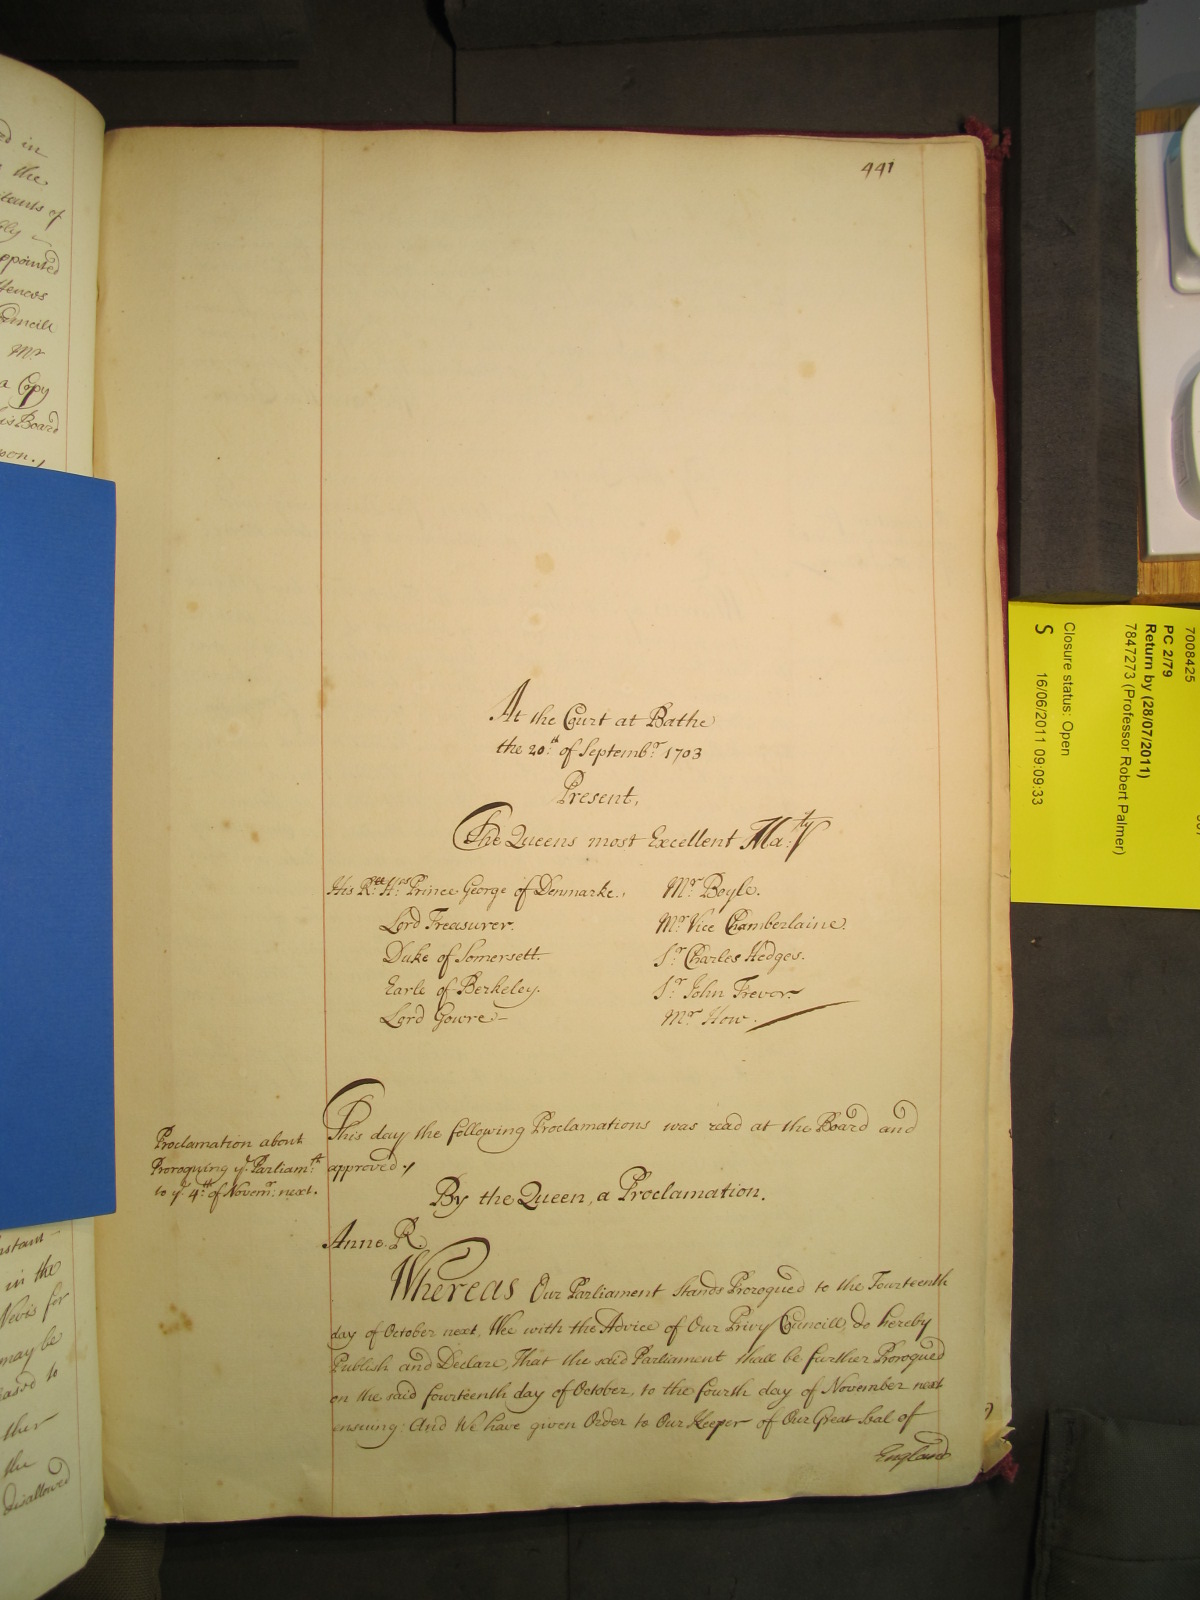 441
At the Court at Bathe
the 20.th of Septemb.r 1703
Present,
The Queens most Excellent Ma:ty
His R.ll H.s Prince George of Denmarke.,
Lord Treasurer.
Duke of Somersett.
Earle of Berkeley.
Lord Gowre
Mr. Boyle.
Mr. Vice Chamberlaine.
S.r Charles Hedges.
S.r John Trevor.
Mr. How.
Proclamation about
Proroguing y.e Parliam.t
to y.e 4.th of Novem.r next.
This day the following Proclamations was read at the Board and
approved
By the Queen, a Proclamation.
Anne. R.
Whereas Our Parliament Stands Prorogued to the Fourteenth
day of October next, Wee with the Advice of Our Privy Councill, do hereby
Publish and Declare, That the said Parliament shall be further Prorogued
on the said fourteenth day of October, to the fourth day of November next
ensuing: And We have given Order to Our Keeper of Our Great Seal of
England
rd in
the
itants of
ppointed
Councill
Mr
a Copy
his Board
pon.
nstant
in the
Nevis for
may be
eased to
ther
the
disallowed
7008425
PC 2/79
Return by (28/07/2011)
7847273 (Professor Robert Palmer)
Closure status: Open
S 16/06/2011 09:09:33